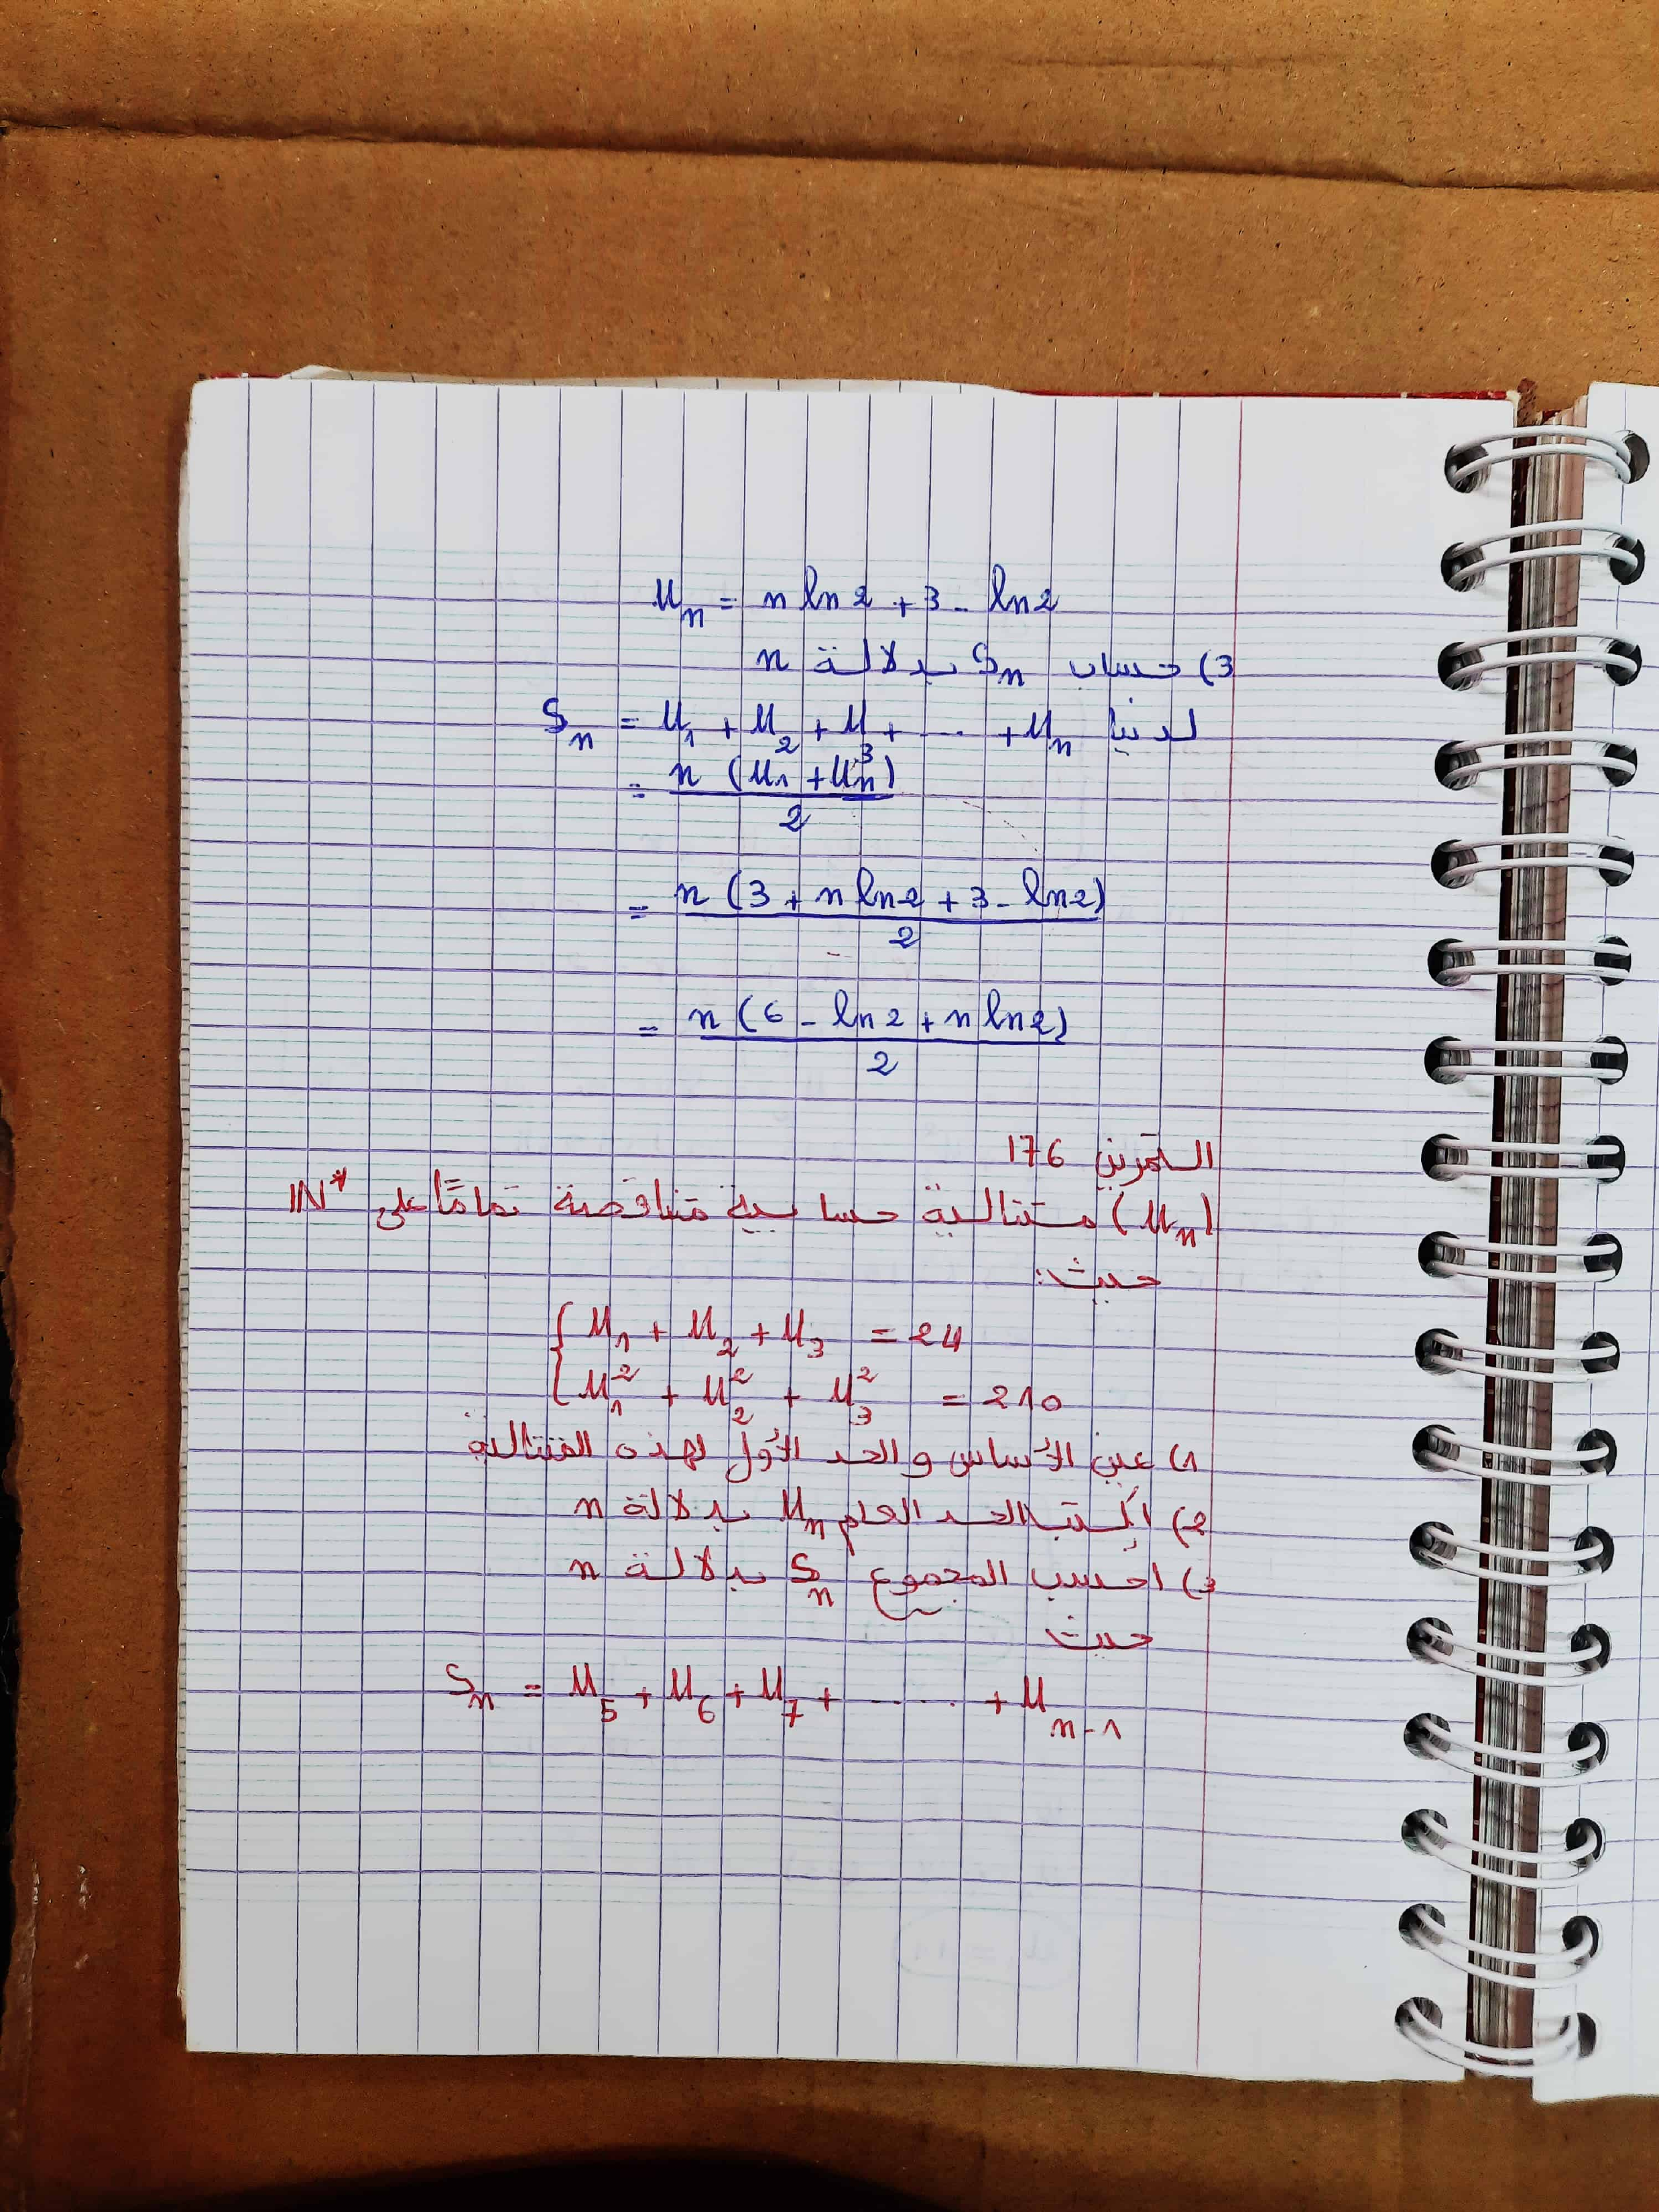 Un = n ln2 + 3 - ln2
3) حساب Sn بدلالة n
لدينا Sn = U1 + U2 + U3 + .... + Un
= n (U1 + Un) / 2
= n (3 + n ln2 + 3 - ln2) / 2
= n (6 - ln2 + n ln2) / 2
التمرين 176
(Un) متتالية حسابية متناقصة تمامًا على IN*
حيث:
{ U1 + U2 + U3 = 24
{ U1² + U2² + U3² = 210
1) عين الأساس والحد الأول لهذه المتتالية
2) أكتب الحد العام Un بدلالة n
3) احسب المجموع Sn بدلالة n
حيث
Sn = U5 + U6 + U7 + ...... + Un-1